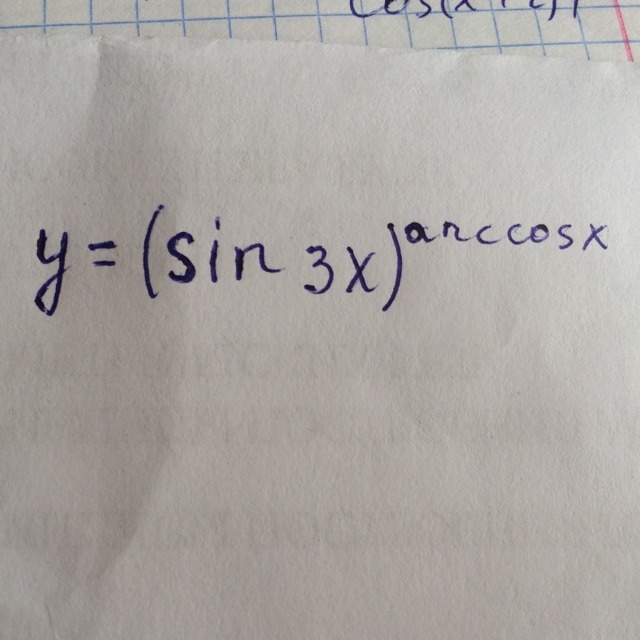 y = (sin 3x)^arccosx